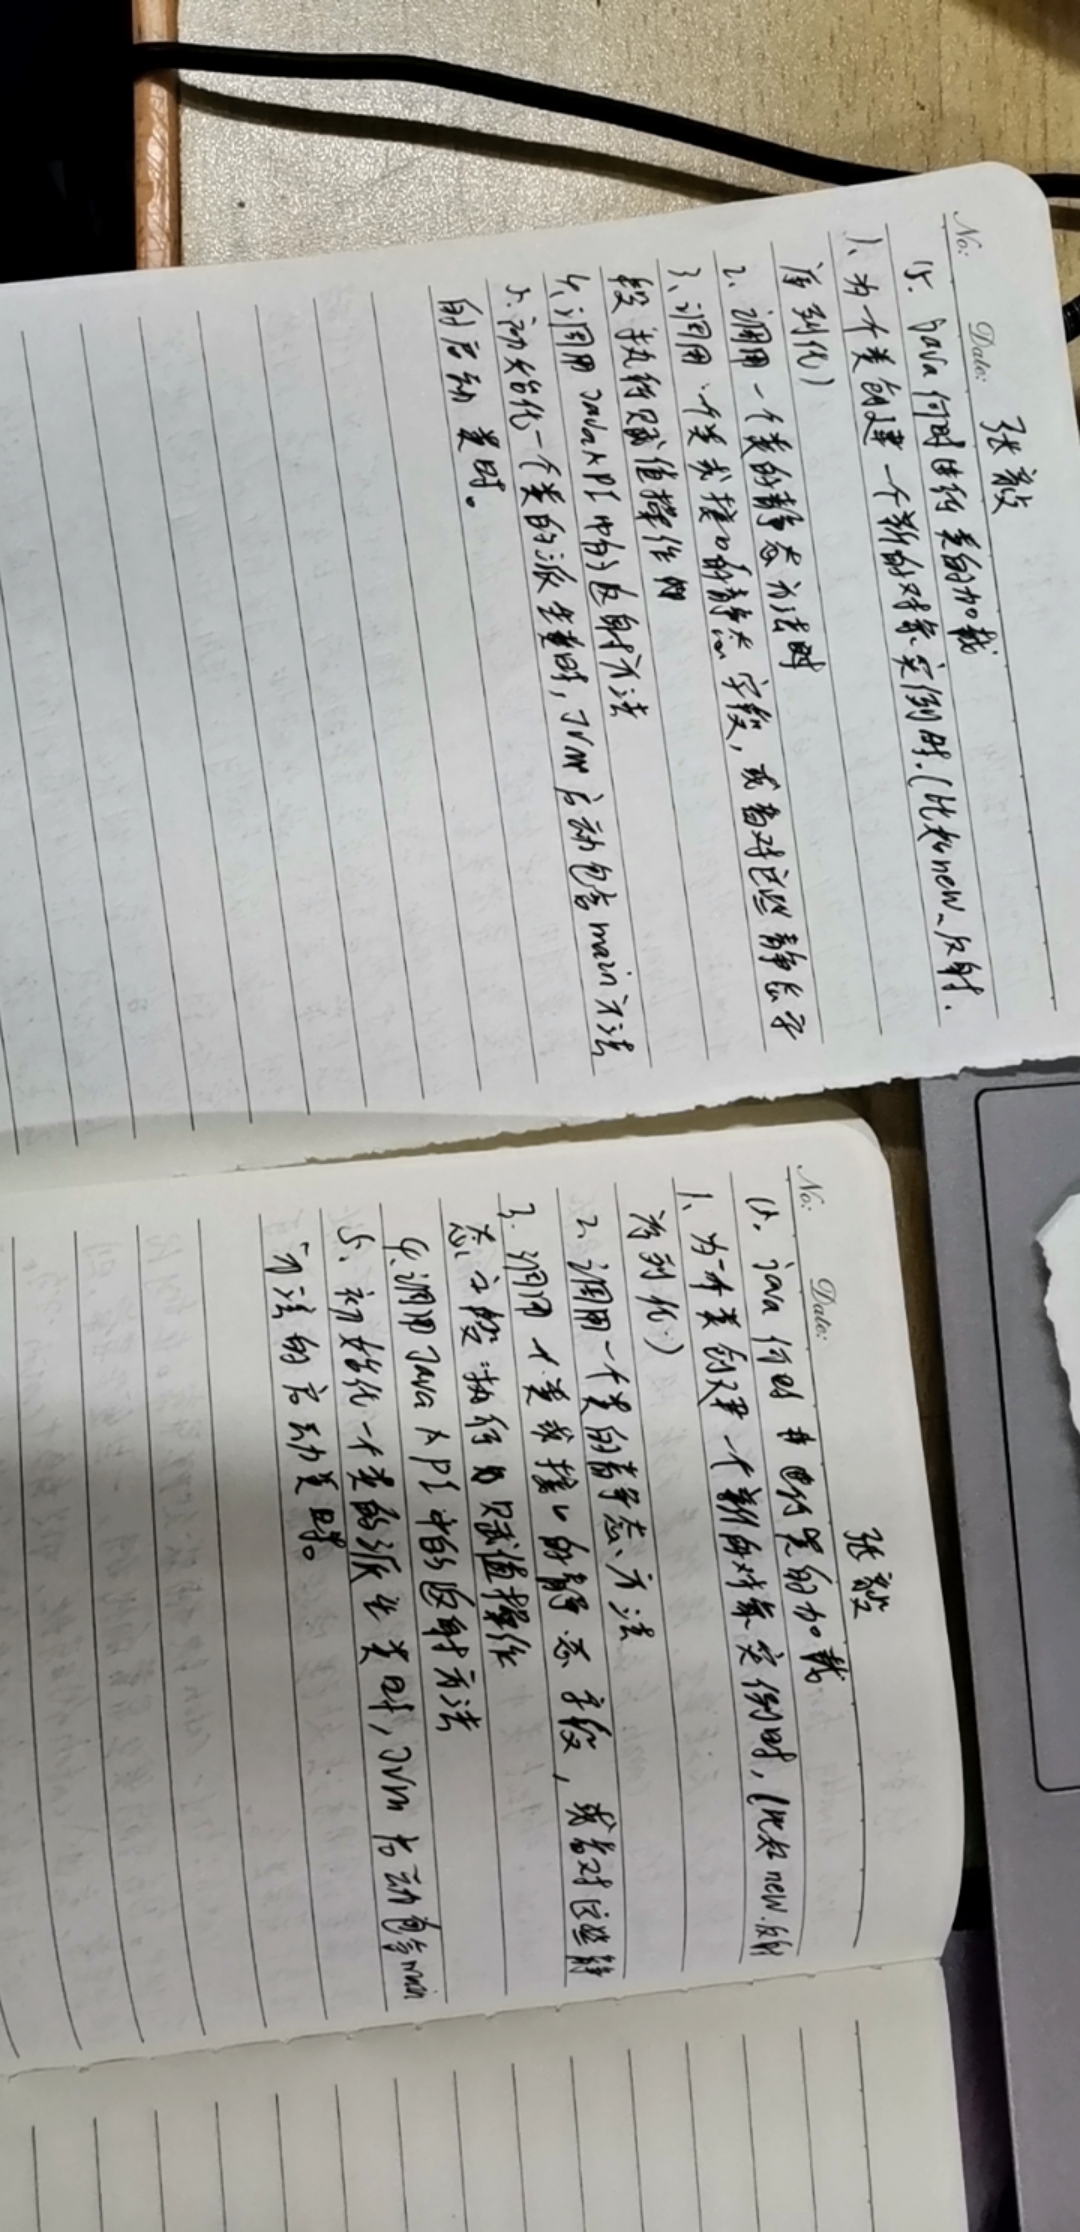 No:
Date:
张毅
15. Java何时进行类的加载
1、为一个类创建一个新的对象实例时.(比如new、反射.
序列化)
2、调用一个类的静态方法时
3、调用一个类或接口的静态字段,或者对这些静态字
段执行赋值操作时
4、调用JavaAPI中的反射方法
5、初始化一个类的派生类时,JVM启动包含main方法
的启动类时。
No:
Date:
张毅
15. java何时进行类的加载
1、为一个类创建一个新的对象实例时,(比如new.反射
序列化)
2、调用一个类的静态方法
3、调用一个类或接口的静态字段,或者对这些静
态字段执行赋值操作
4、调用JavaAPI中的反射方法
5、初始化一个类的派生类时,JVM启动包含main
方法的启动类时。